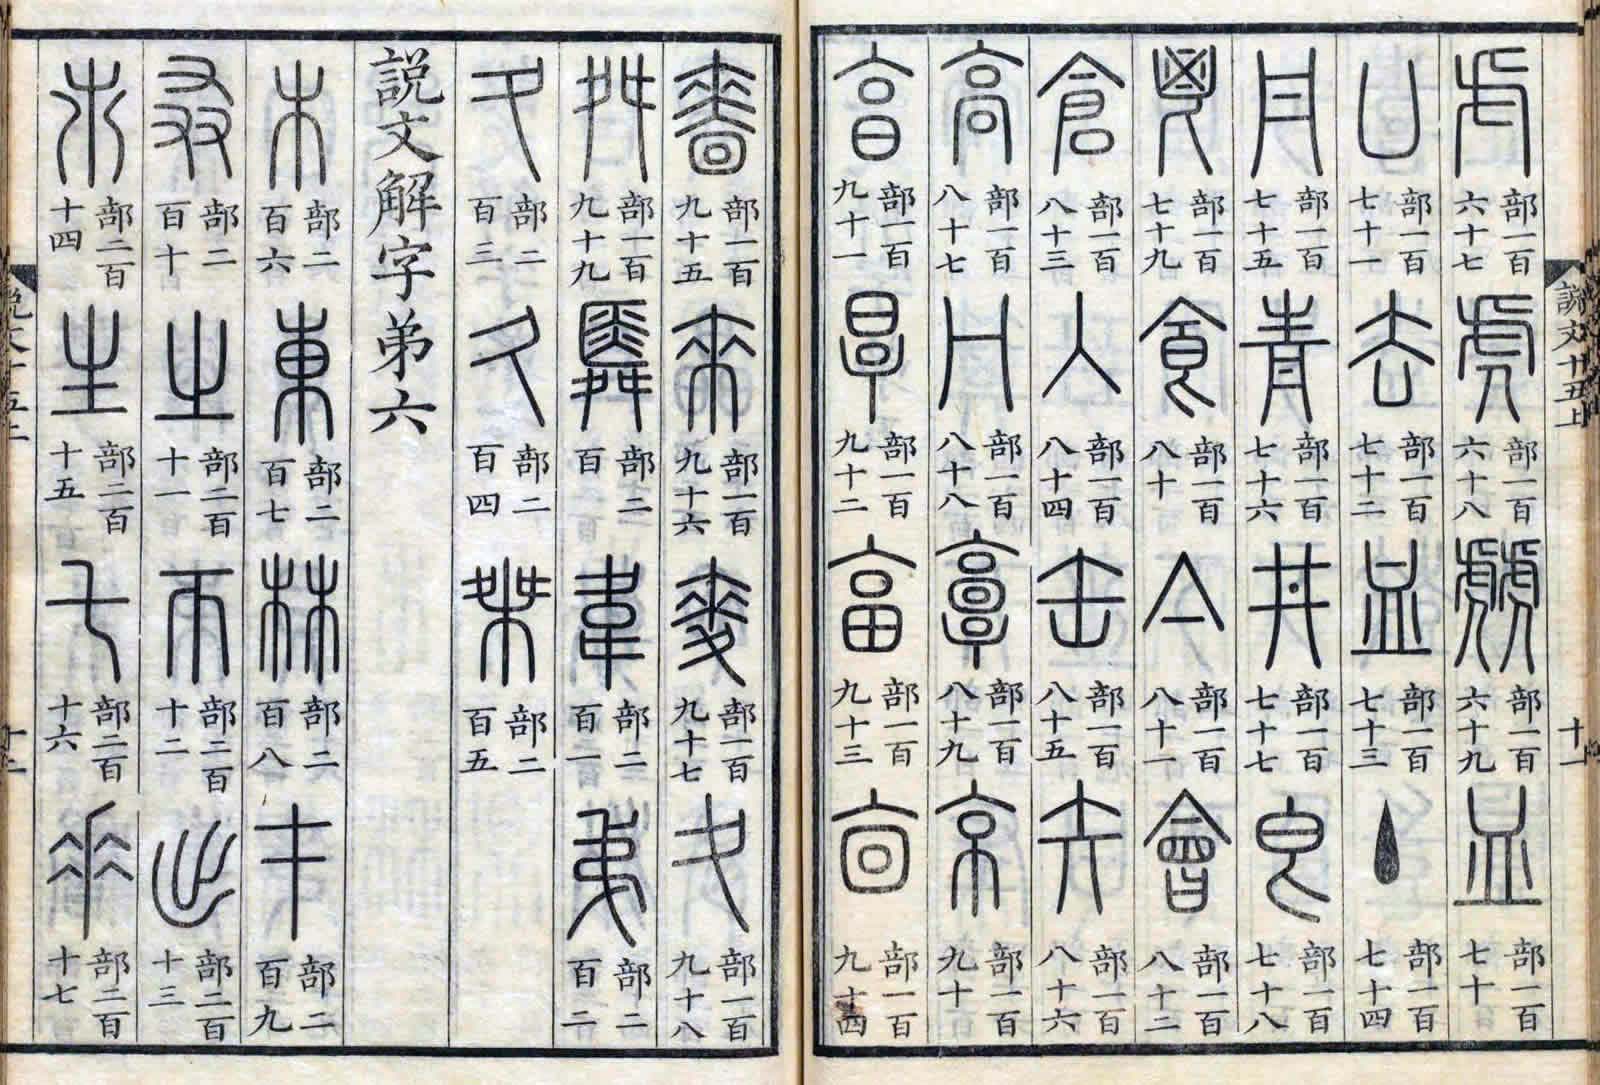 說文十五上 十一
虍 部一百六十七 虎 部一百六十八 虤 部一百六十九 皿 部一百七十
凵 部一百七十一 去 部一百七十二 血 部一百七十三 丶 部一百七十四
丹 部一百七十五 青 部一百七十六 井 部一百七十七 皀 部一百七十八
鬯 部一百七十九 食 部一百八十 亼 部一百八十一 會 部一百八十二
倉 部一百八十三 入 部一百八十四 缶 部一百八十五 矢 部一百八十六
高 部一百八十七 冂 部一百八十八 𩫏 部一百八十九 京 部一百九十
亯 部一百九十一 㫗 部一百九十二 畗 部一百九十三 㐭 部一百九十四
嗇 部一百九十五 來 部一百九十六 麥 部一百九十七 夊 部一百九十八
舛 部一百九十九 舜 部二百 韋 部二百一 弟 部二百二
夂 部二百三 久 部二百四 桀 部二百五
說文解字弟六
木 部二百六 東 部二百七 林 部二百八 才 部二百九
叒 部二百十 之 部二百十一 帀 部二百十二 出 部二百十三
𣎵 部二百十四 生 部二百十五 乇 部二百十六 𠂹 部二百十七